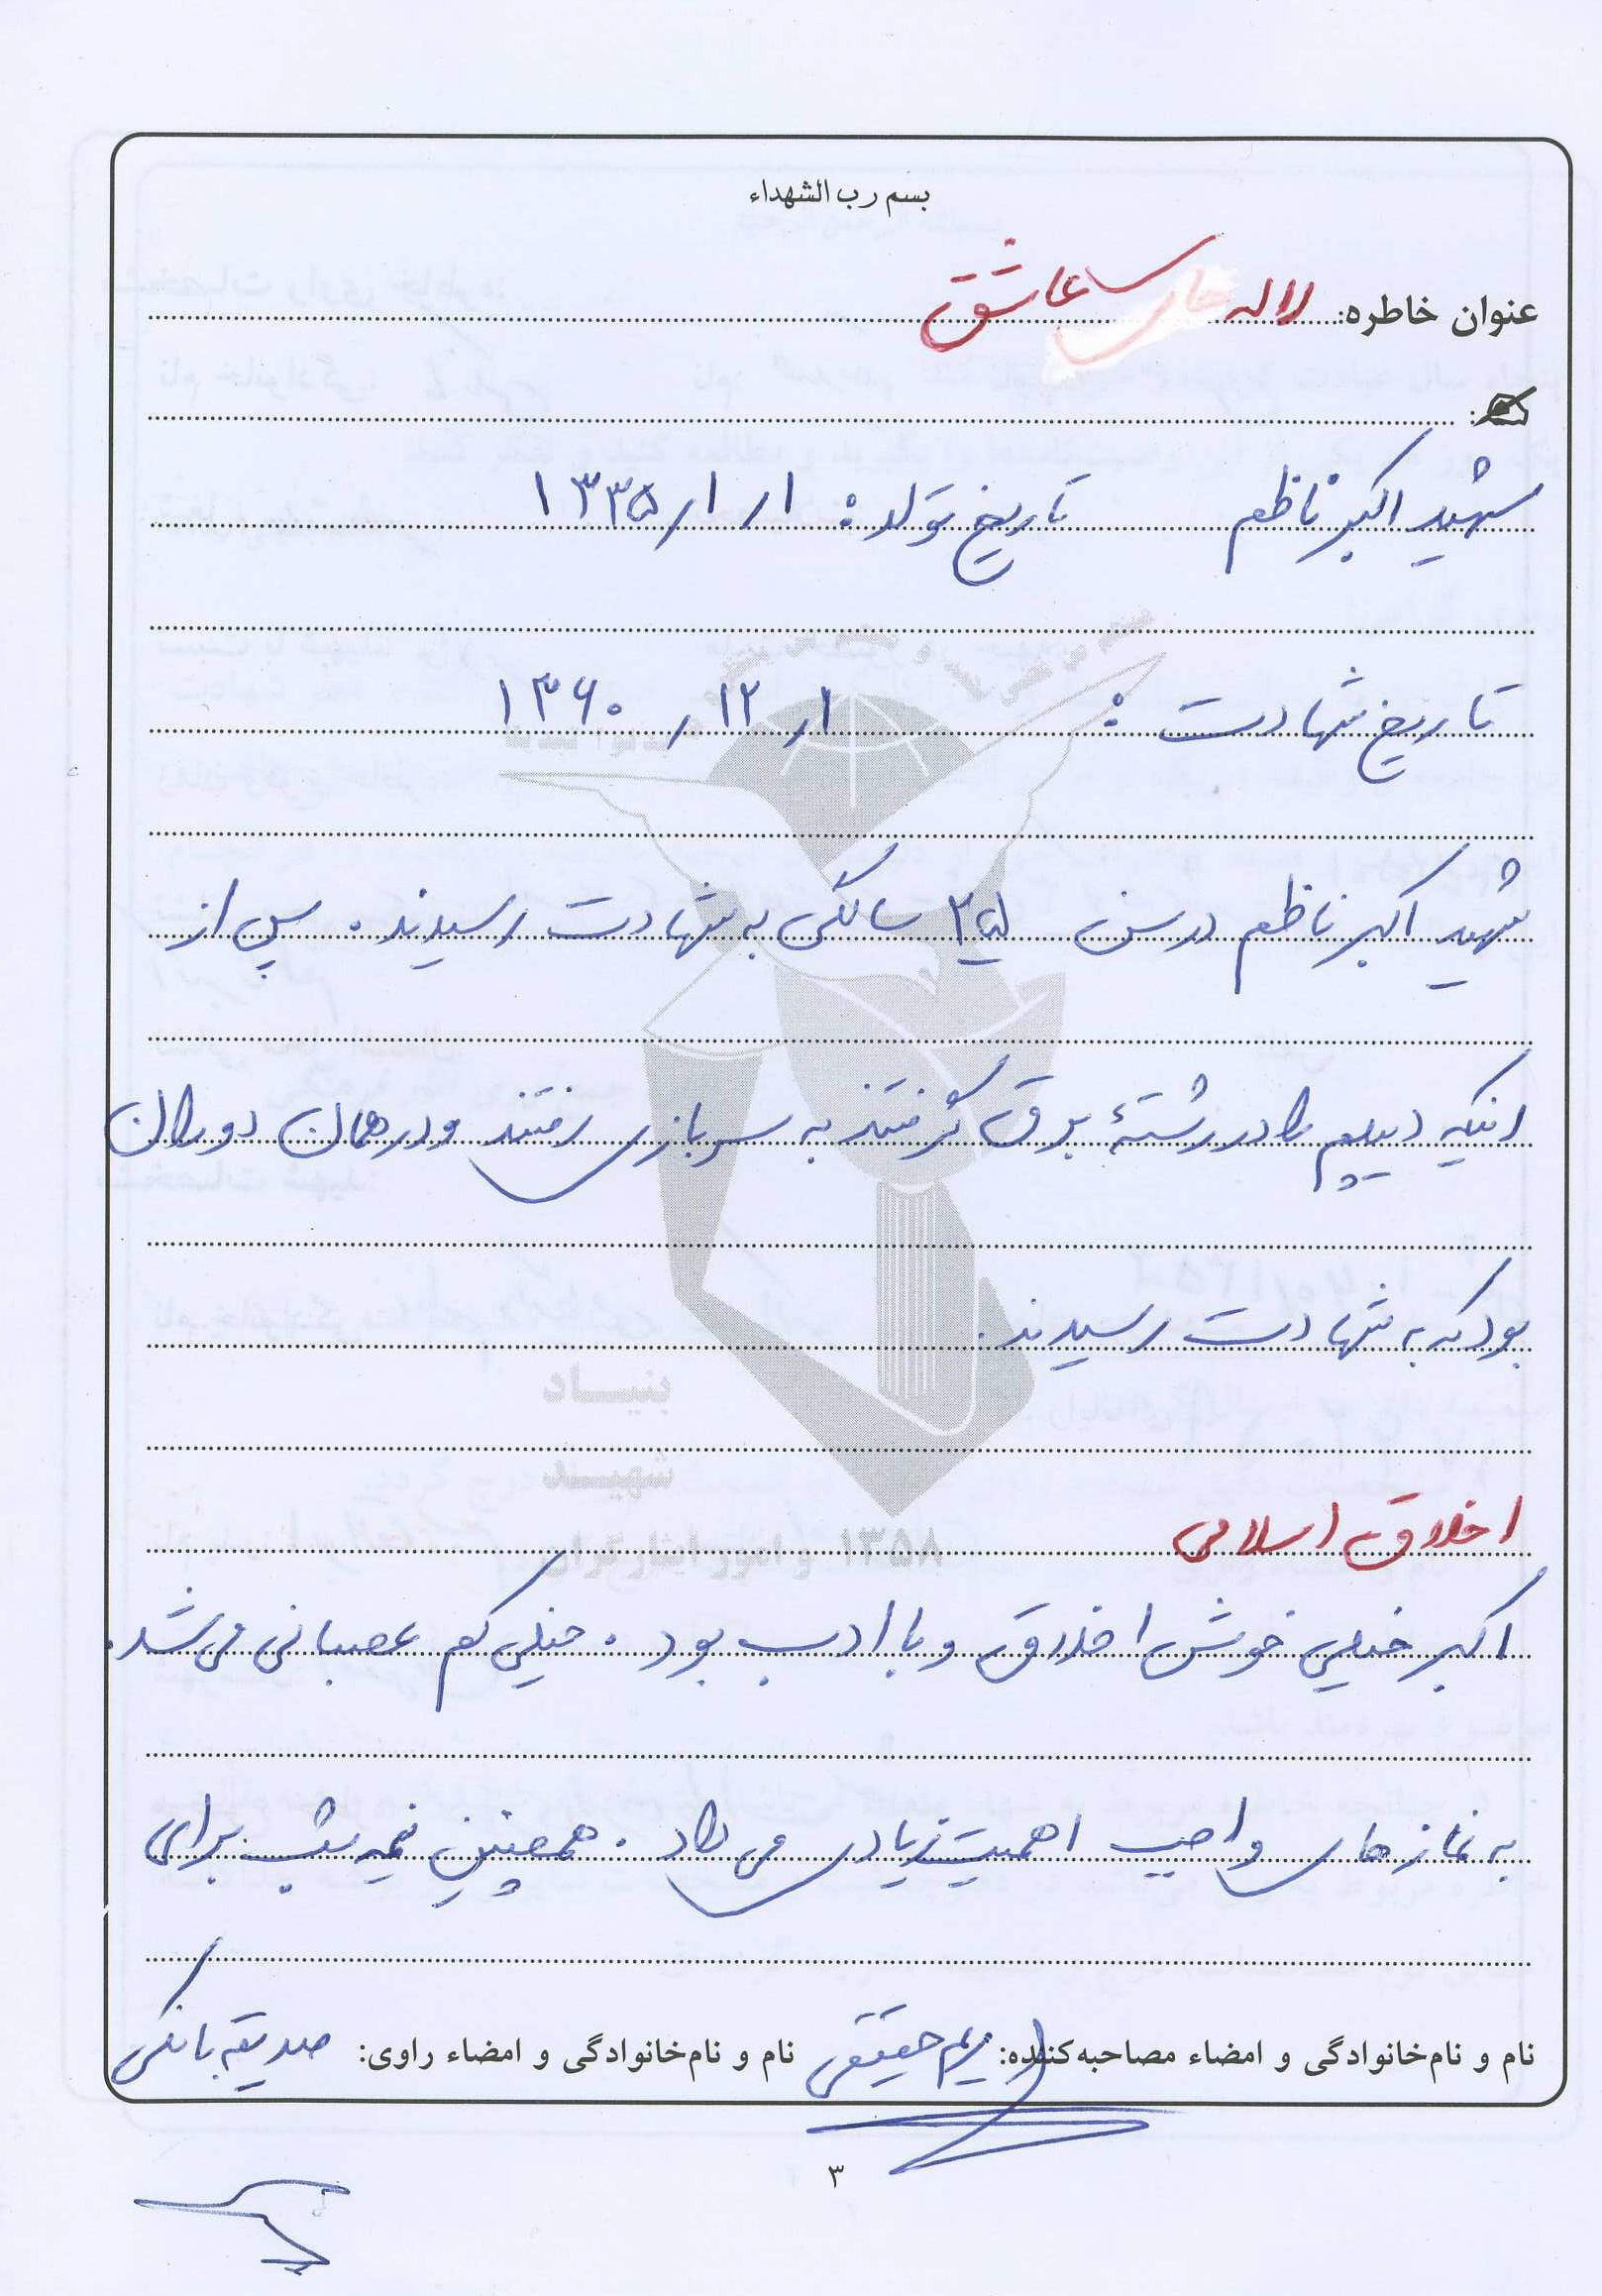 بسم رب الشهداء
عنوان خاطره: لاله های عاشق
شهید اکبر ناظم تاریخ تولد: ۱۳۳۵/۱/۱
تاریخ شهادت: ۱۳۶۰/۱۲/۱
شهید اکبر ناظم در سن ۲۵ سالگی به شهادت رسیدند. پس از
اینکه دیپلم را در رشتهٔ برق گرفتند به سربازی رفتند و در همان دوران
بود که به شهادت رسیدند.
اخلاق اسلامی
اکبر خیلی خوش اخلاق و با ادب بود. خیلی کم عصبانی می شد.
به نمازهای واجب اهمیت زیادی می داد. همچنین نیمه شب برای
نام و نام‌خانوادگی و امضاء مصاحبه‌کننده: مریم حقیقی نام و نام‌خانوادگی و امضاء راوی: صدیقه بانکی
۳
بنیاد
شهید
و امور ایثارگران ۱۳۵۸